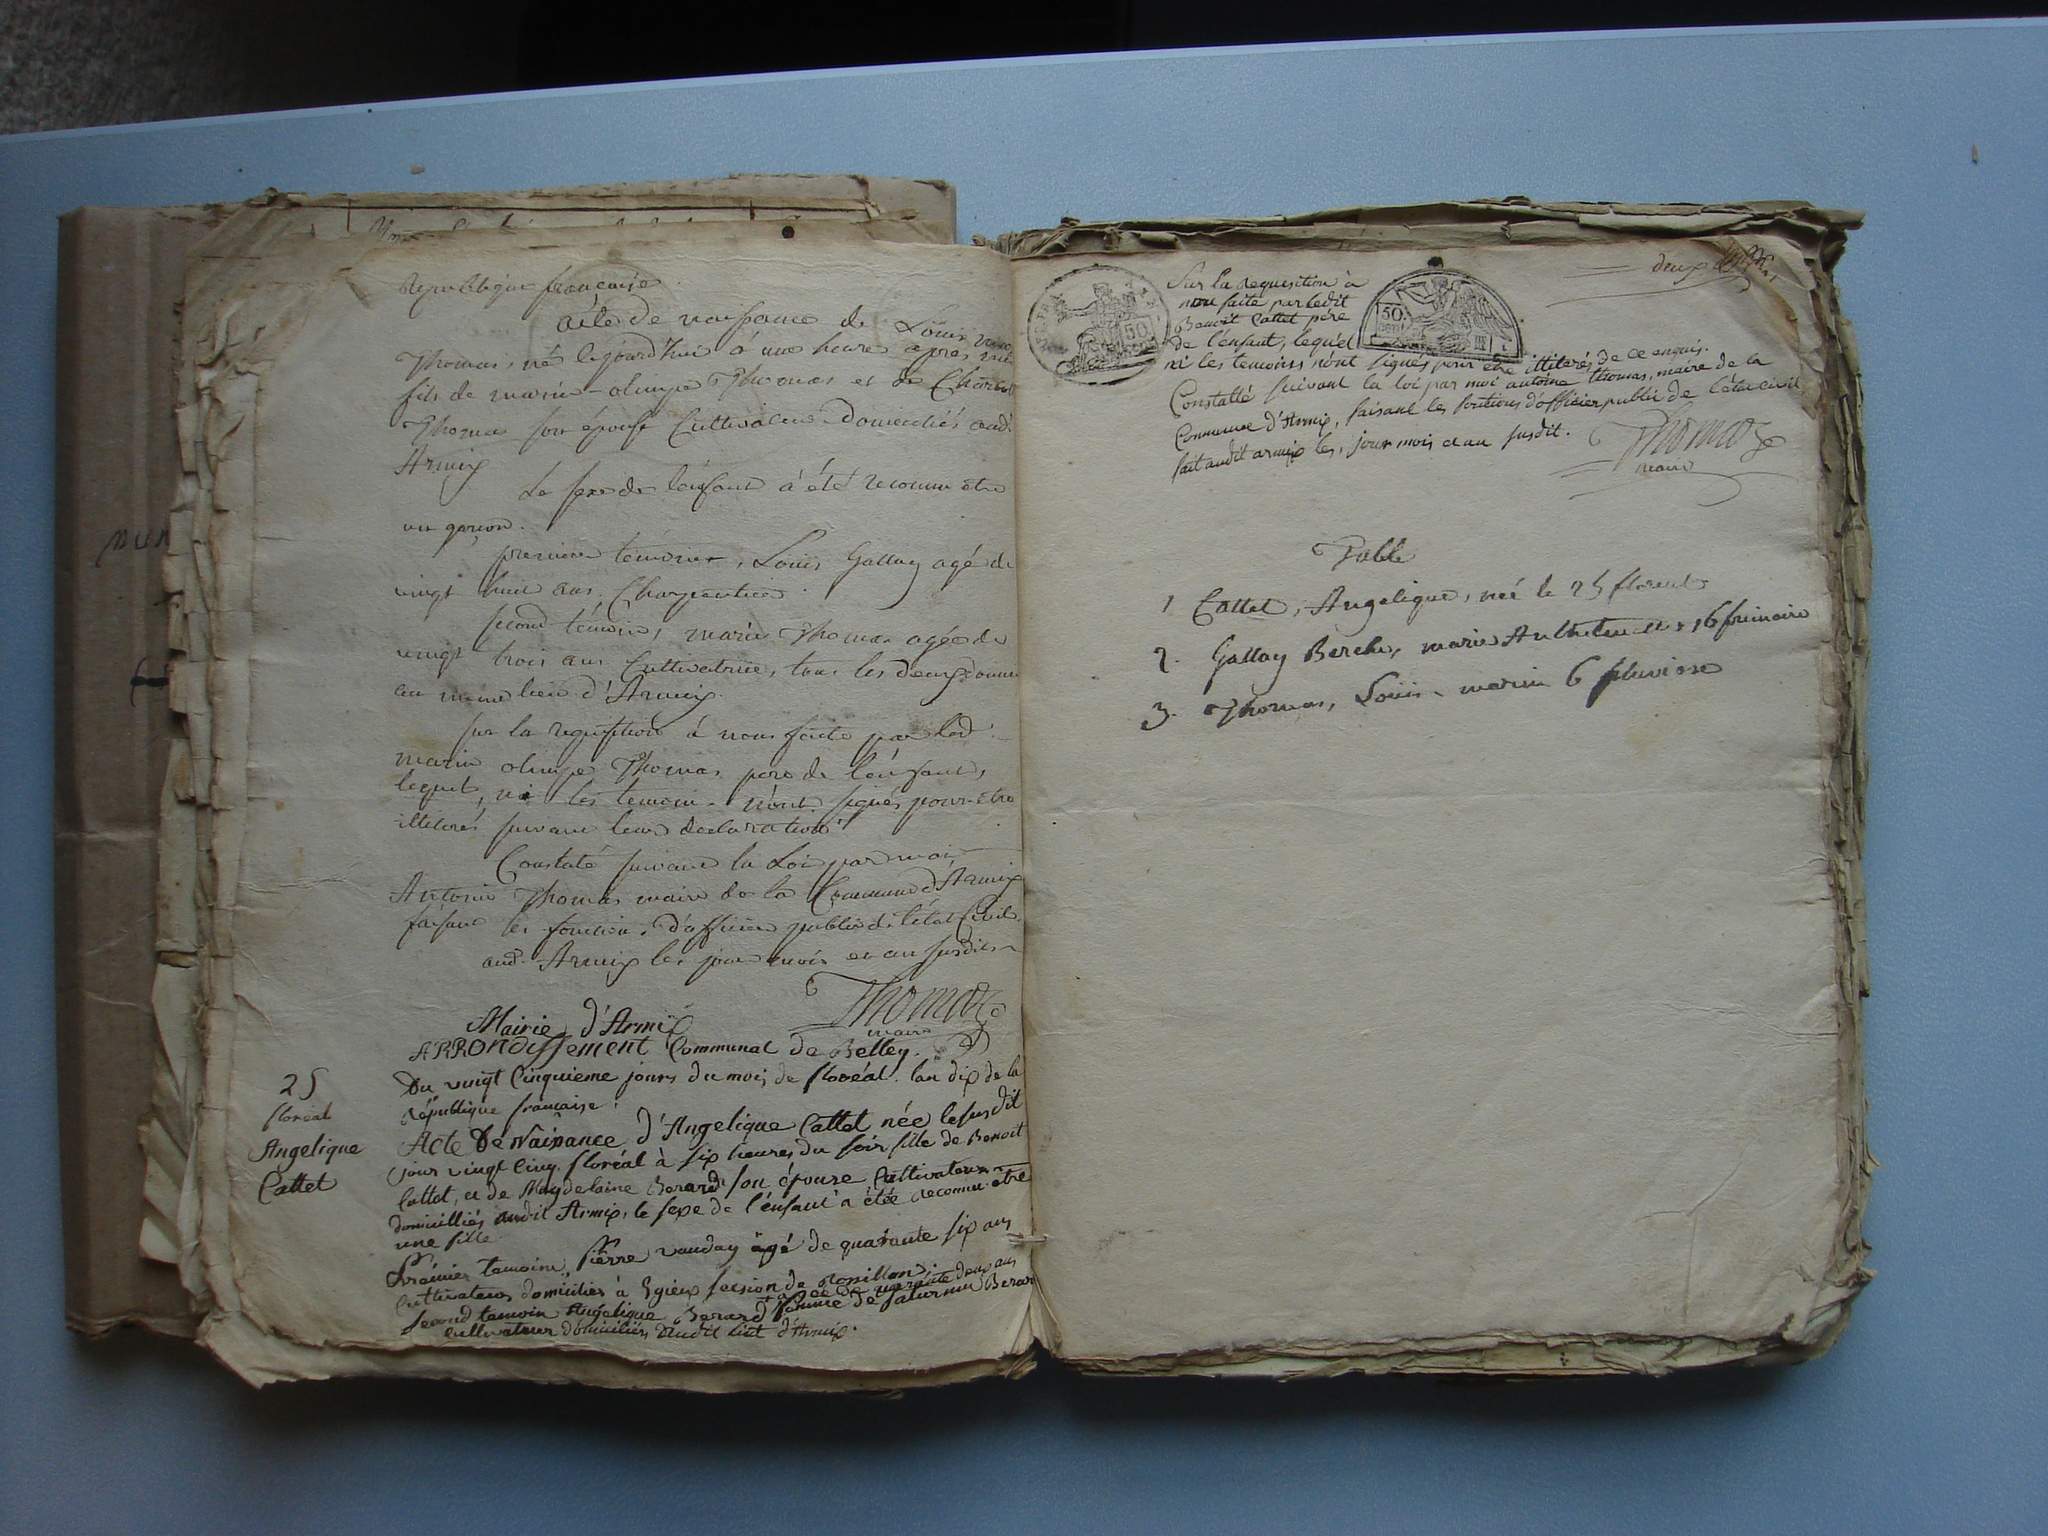 République française.
Acte de naissance de Louis
Thomas, né le jourd'hui à une heure après midi
fils de marin-olimpe Thomas et de
Thomas son épouse Cultivateurs Domiciliés aud.
Armix
Le sexe de l'enfant à été reconnu être
un garçon.
premier témoin, Louis Gallay agé de
vingt huit ans Charpentier.
second témoin, marie Thomas agée de
vingt trois ans Cultivatrice, tous les deux
au même lieu d'Armix.
sur la requisition à nous faite par led.
marin olimpe Thomas père de l'enfant,
lequel, ni les temoins n'ont signés pour être
illiterés suivant leur declaration.
Constaté suivant la Loi par moi
Antoine Thomas maire de la Commune d'Armix
faisant les fonction d'officier public de l'état Civil.
aud. Armix les jour mois et an susdits
Thomas
maire
Mairie d'Armix
ARRondissement Communal de Belley.
25
floréal
Angelique
Cattet
Du vingt Cinquieme jours du mois de floréal. lan dix de la
république francaise.
Acte De Naissance d'Angelique Cattet née le susdit
jour vingt Cinq floréal à six heures du soir fille de Benoit
Cattet, et de Magdelaine Berard son épouse Cultivateurs
domicilliés audit Armix, le sexe de l'enfant a étée reconnu etre
une fille
Prémier temoin, Pierre vauday âgé de quarante six ans
Cultivateur domicilies à Egieu section de Rossillon.
Second temoin Angelique Berard femme de saturnin Berard
agée de quarante deux ans
Cultivateur domiciliés audit liet d'Armix.
deux
Sur la requisition à
nou faite par ledit
Benoit Cattet père
de l'enfant, lequel
ni les temoins n'ont signés pour être illiterés de ce enquis.
Constatté suivant la loi par moi antoine thomas, maire de la
Commune d'Armix, faisant les fontions d'officier public de l'état civil
fait audit armix les, jour mois et an susdit.
Thomas
maire
50
50
Table
1 Cattet, Angelique, née le 25 floreal
2. Gallay Berche, marie 16 frimaire
3. Thomas, Louis marin 6 pluviose